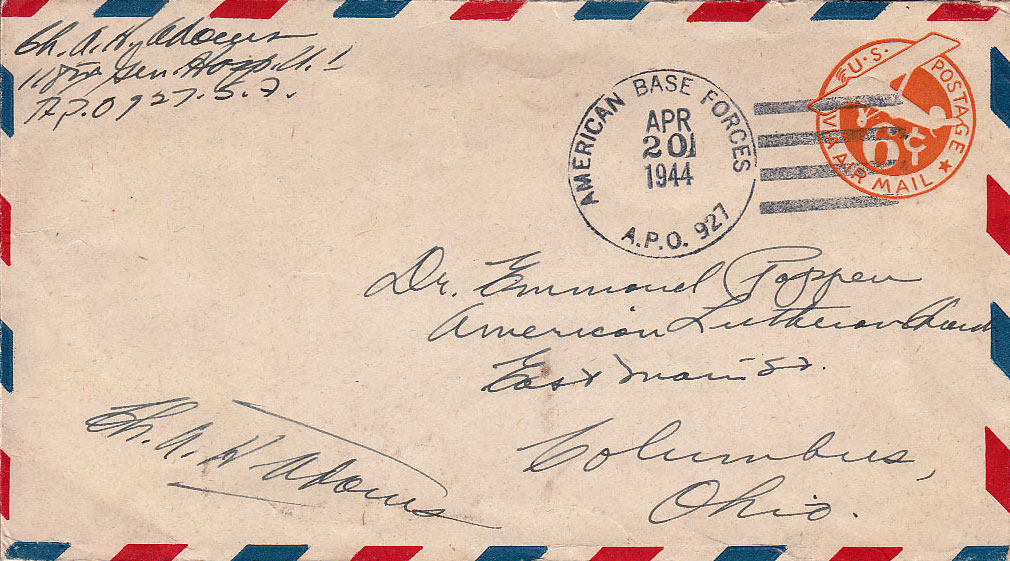 Ch. A. H. Adams
118th Gen. Hosp. U. 1
A.P.O 927. S. F.
AMERICAN BASE FORCES
APR
20
1944
A.P.O. 927
U.S. POSTAGE
6¢
VIA AIR MAIL
Dr. Emmanuel Poppen
American Lutheran Church
East Main St.
Columbus,
Ohio.
Ch. A. H Adams